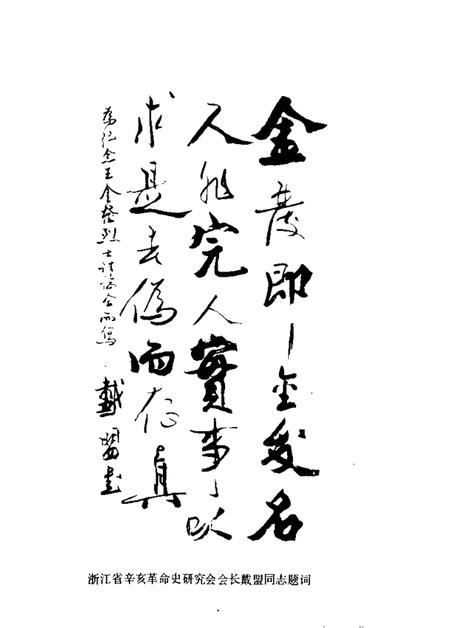 金發即金發名
人非完人實事以
求是去偽而存真
为纪念王金發烈士讨论会而写
戴盟書
浙江省辛亥革命史研究会会长戴盟同志题词